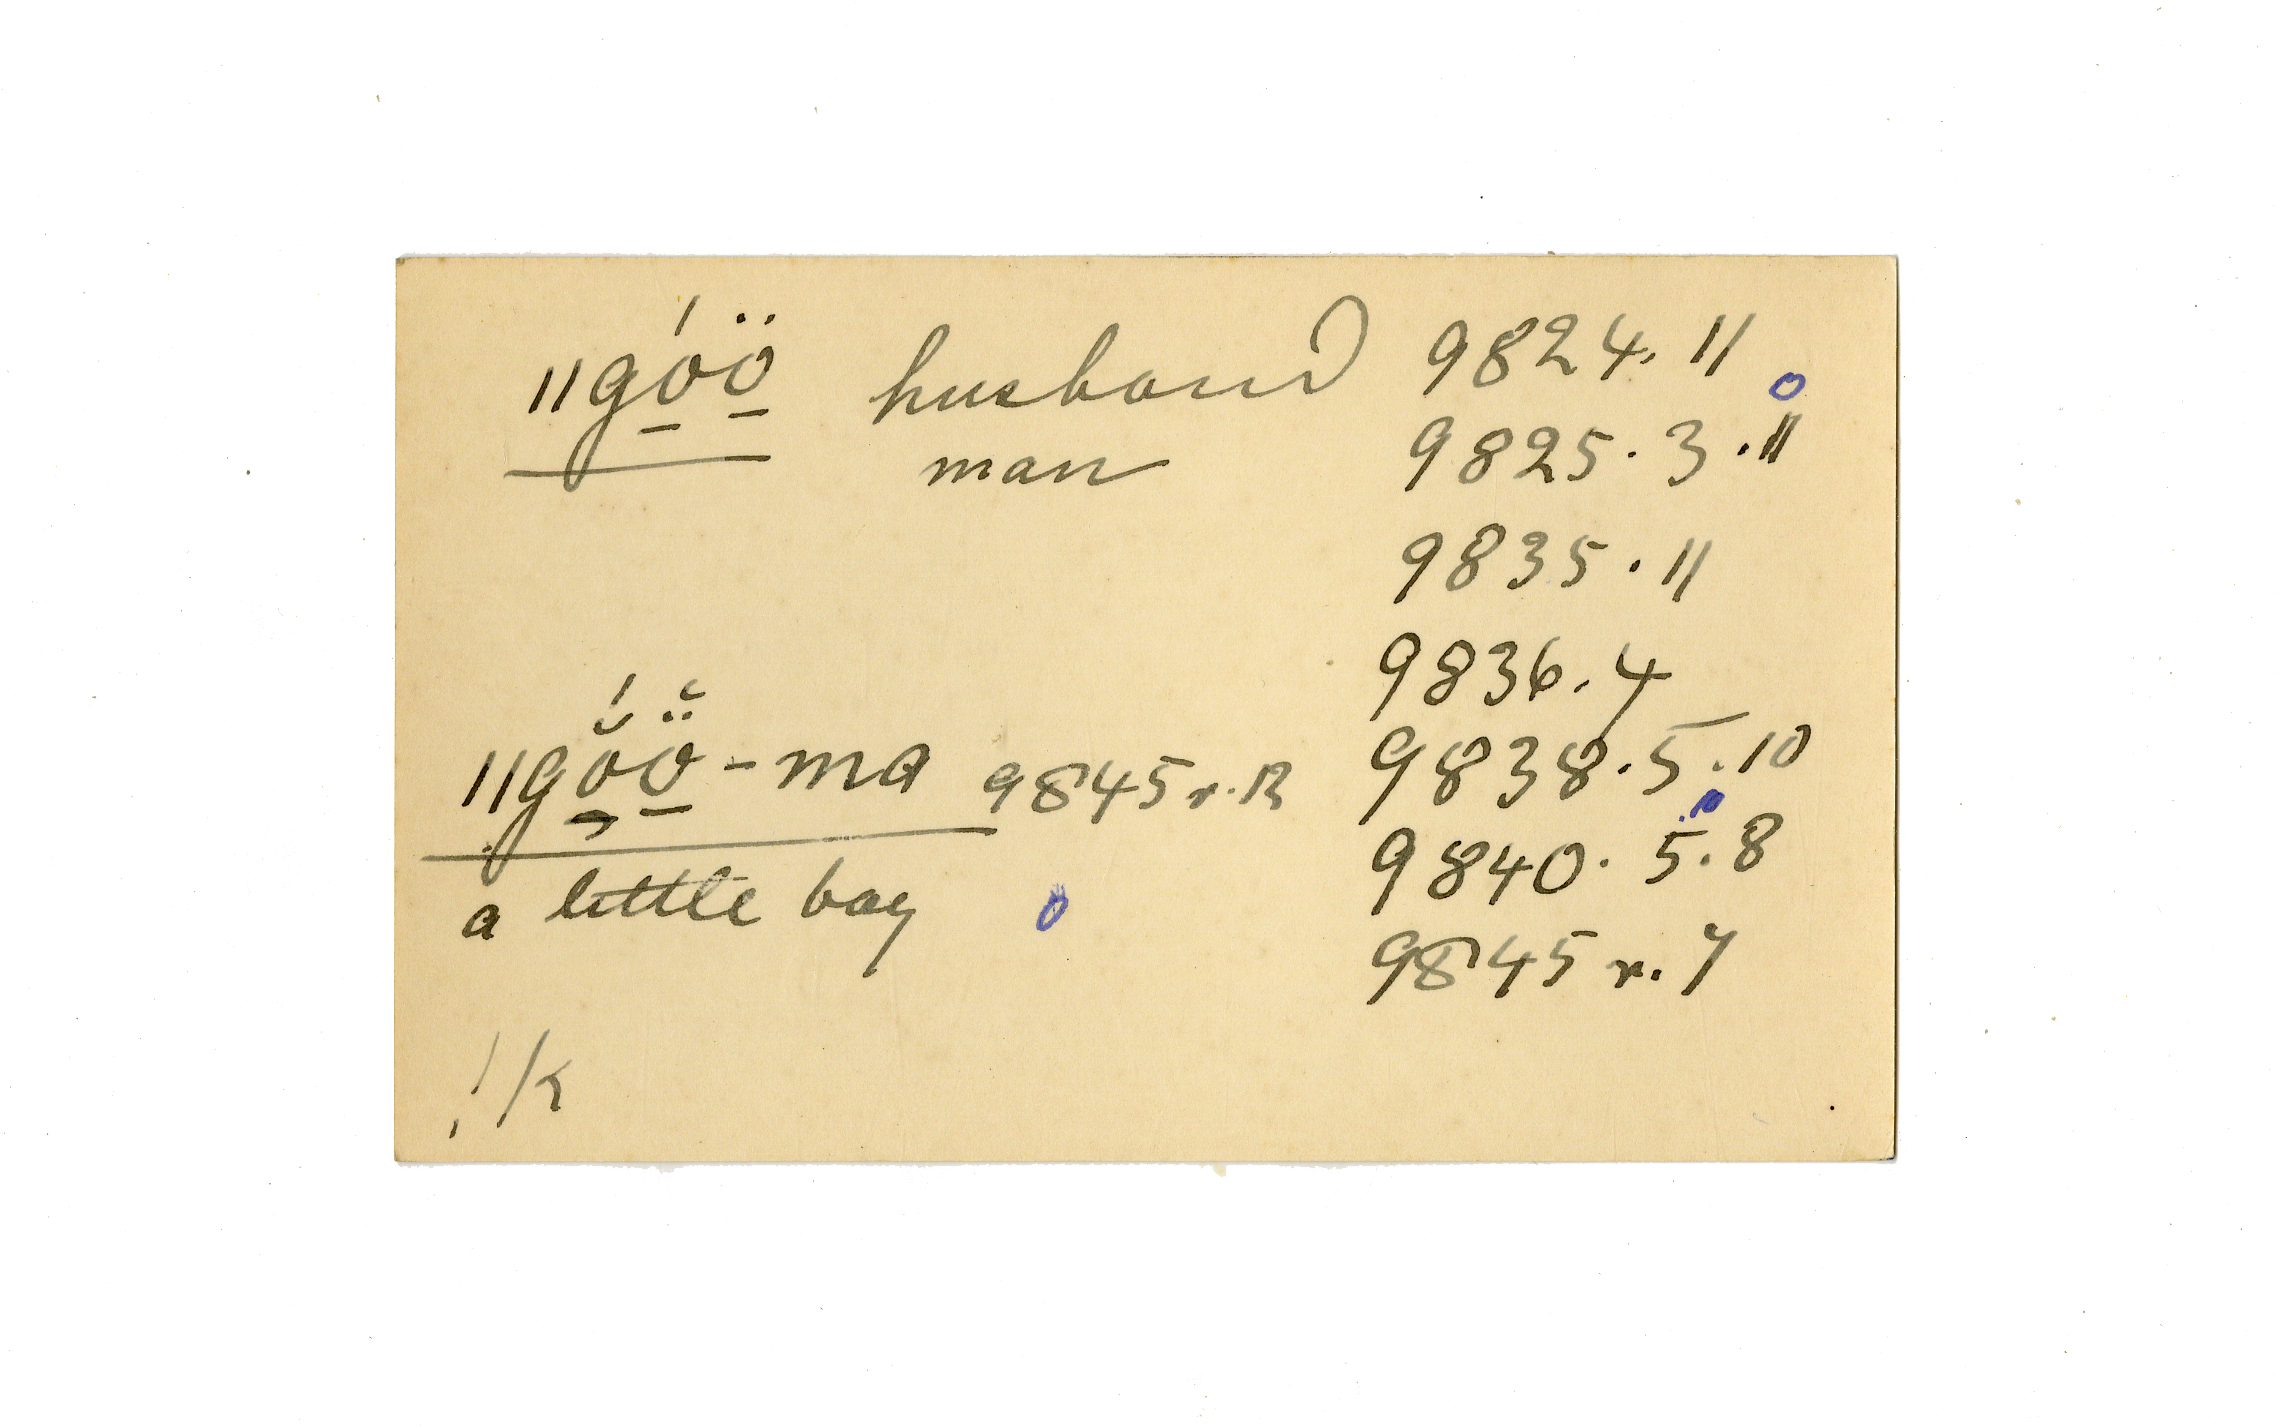 ǁgó̱ö̱ husband 9824. 11
man 9825. 3. 11
9835. 11
9836. 4
ǁgŏ́ö̱̆-ma 9845 r. 13 9838. 5. 10
10
9840. 5. 8
a little bag
9845 r. 7
!k